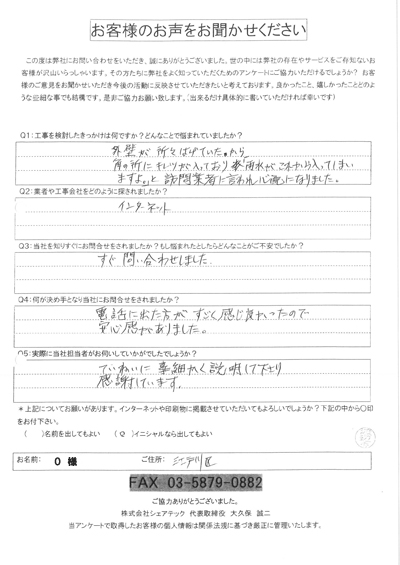 お客様のお声をお聞かせください
この度は弊社にお問い合わせをいただき、誠にありがとうございました。世の中には弊社の存在やサービスをご存知ないお
客様が沢山いらっしゃいます。その方たちに弊社をよく知っていただくためのアンケートにご協力いただけるでしょうか？ お客
様のご意見をお聞かせいただき今後の活動に反映させていただきたいと考えております。良かったこと、嬉しかったことどのよ
うな些細な事でも結構です。是非ご協力お願い致します。（出来るだけ具体的に書いていただければ幸いです）
Q1：工事を検討したきっかけは何ですか？どんなことで悩まれていましたか？
外壁が所々はげていた。から
角の所にキレツが入っており 雨水がこれから入ってしまい
ますよ。と訪問業者に言われ心配になりました。
Q2：業者や工事会社をどのように探されましたか？
インターネット
Q3：当社を知りすぐにお問合せをされましたか？もし悩まれたとしたらどんなことがご不安でしたか？
すぐ問い合わせしました.
Q4：何が決め手となり当社にお問合せをされましたか？
電話に出た方が すごく感じ良かったので
安心感がありました。
Q5：実際に当社担当者がお伺いしていかがでしたでしょうか？
ていねいに 事細かく説明して下さり
感謝しています.
＊上記についてお願いがあります。インターネットや印刷物に掲載させていただいてもよろしいでしょうか？下記の中から〇印
をお付下さい。
（ ）名前を出してもよい （〇）イニシャルなら出してもよい
お名前： O 様 ご住所： 江戸川区
FAX 03-5879-0882
ご協力ありがとうございました。
株式会社シェアテック 代表取締役 大久保 誠二
当アンケートで取得したお客様の個人情報は関係法規に基づき厳正に管理いたします。